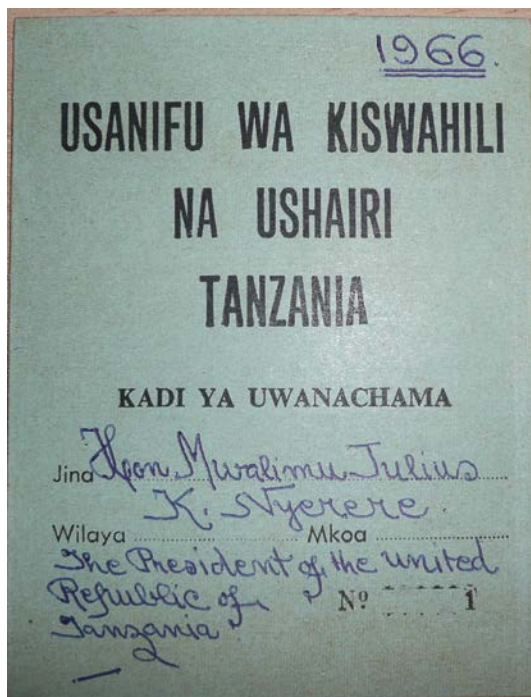 1966.
USANIFU WA KISWAHILI
NA USHAIRI
TANZANIA
KADI YA UWANACHAMA
Jina Hon Mwalimu Julius
K. Nyerere.
Wilaya Mkoa
The President of the united
Republic of Nº 1
Tanzania